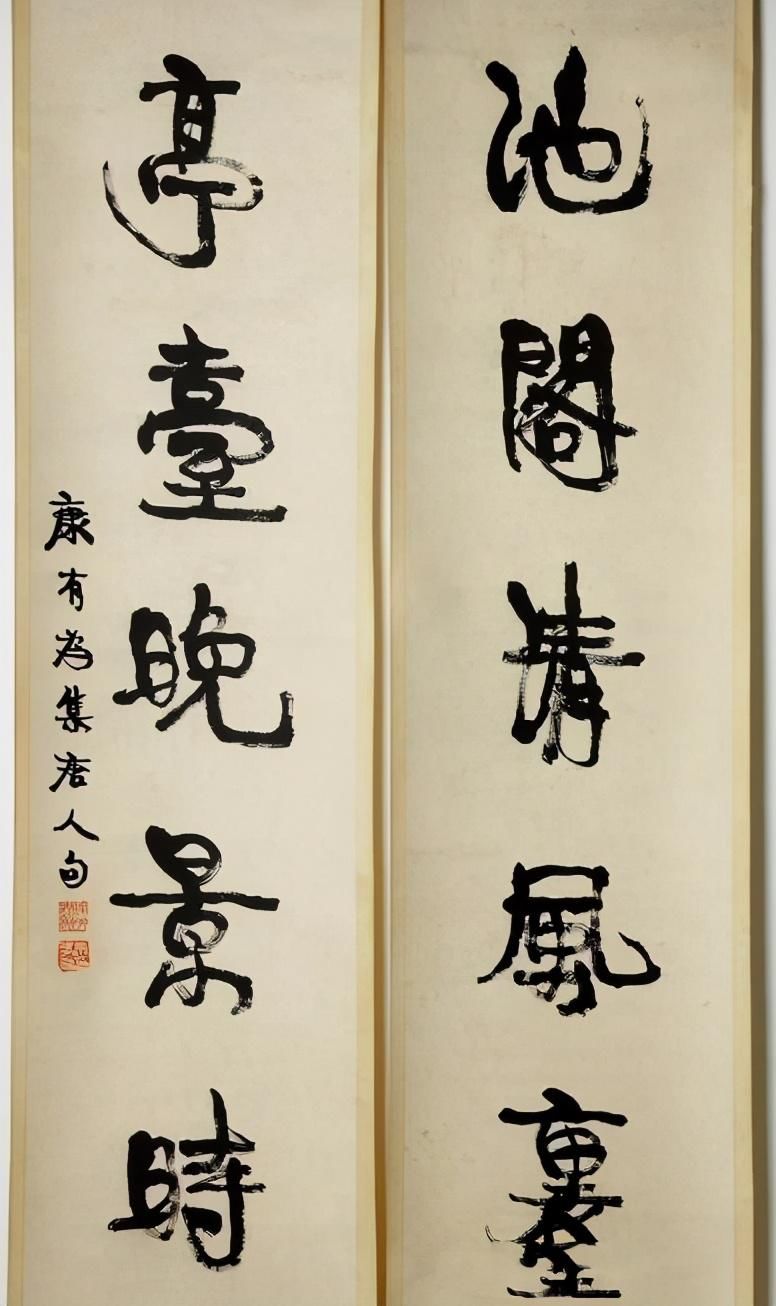 池閣清風裏
亭臺晚景時
康有為集唐人句